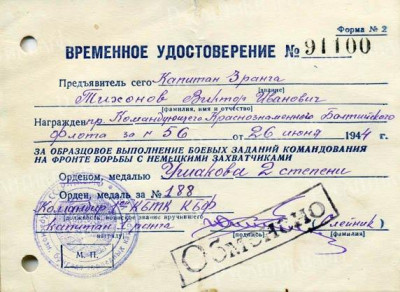 Форма № 2
ВРЕМЕННОЕ УДОСТОВЕРЕНИЕ № 91100
Предъявитель сего Капитан 3 ранга
(звание)
Тихонов Виктор Иванович
(фамилия, имя и отчество)
Награжден пр. Командующего Краснознаменного Балтийского
Флота за № 56 от 26 июня 1944 г.
ЗА ОБРАЗЦОВОЕ ВЫПОЛНЕНИЕ БОЕВЫХ ЗАДАНИЙ КОМАНДОВАНИЯ
НА ФРОНТЕ БОРЬБЫ С НЕМЕЦКИМИ ЗАХВАТЧИКАМИ
Орденом, медалью Ушакова 2 степени
Орден, медаль за № 188
Командир 1го КБТК КБФ
воинское звание вручившего
капитан 2 ранга (Олейник)
награду) (подпись) (фамилия)
М. П.
ОБМЕНЕНО